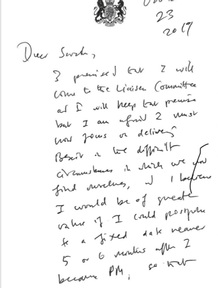 23
2019
Dear Sarah,
I promised that I will
come to the Liaison Committee
and I will keep that promise
but I am afraid I must
now focus on delivering
Brexit in the difficult
circumstances in which we now
find ourselves, and I believe
I would be of greater
value if I could postpone
to a fixed date nearer
5 or 6 months after I
became PM, so that